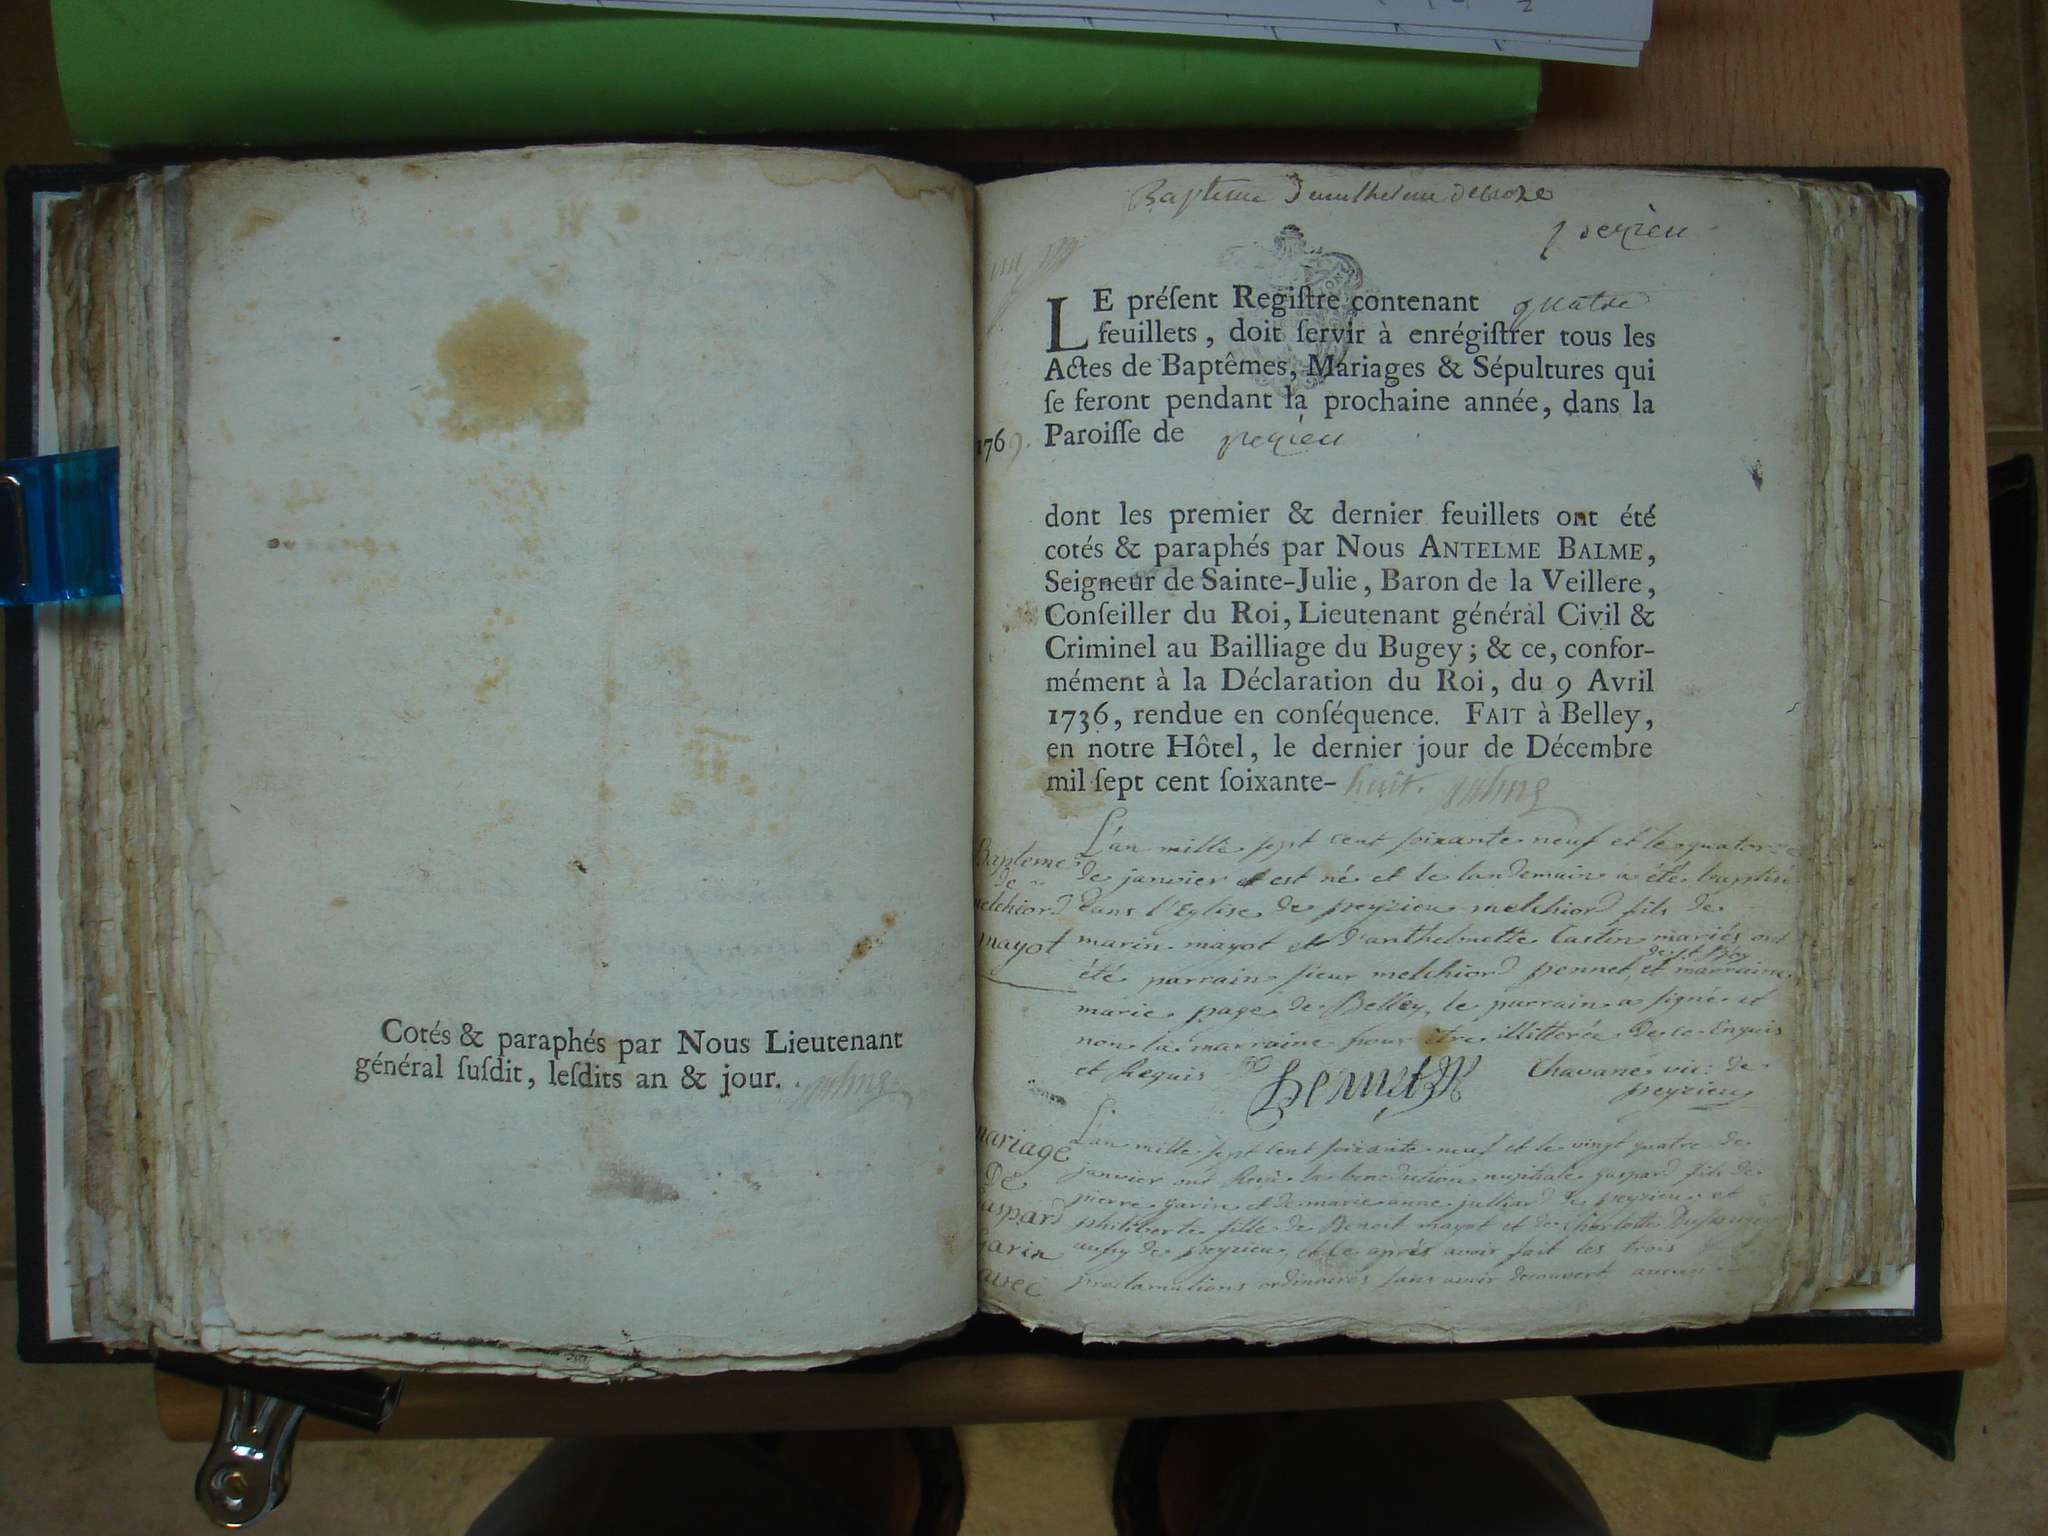 Cotés & paraphés par Nous Lieutenant
général ſuſdit, leſdits an & jour.
Bapteme
peyrieu
LE préſent Regiſtre contenant quatre
feuillets, doit ſervir à enrégiſtrer tous les
Actes de Baptêmes, Mariages & Sépultures qui
ſe feront pendant la prochaine année, dans la
1769. Paroiſſe de peyrieu
dont les premier & dernier feuillets ont été
cotés & paraphés par Nous ANTELME BALME,
Seigneur de Sainte-Julie, Baron de la Veillere,
Conſeiller du Roi, Lieutenant général Civil &
Criminel au Bailliage du Bugey; & ce, confor-
mément à la Déclaration du Roi, du 9 Avril
1736, rendue en conſéquence. FAIT à Belley,
en notre Hôtel, le dernier jour de Décembre
mil ſept cent ſoixante-huit.
Bapteme
de
melchiord
mayot
L'an mille sept cent soixante neuf et le quatorze
de janvier est né et le landemain a été baptisé
dans l'Eglise de peyrieu melchiord fils de
marin mayot et d'anthelmette Castin mariés ont
été parrain sieur melchiord pennet et marraine
marie page de Belley, le parrain a signé et
non la marraine pour être illitterée De ce Enquis
et Requis
Chavane vic: de
peyrieu
mariage
De
gaspard
garin
avec
L'an mille sept cent soixante neuf et le vingt quatre de
janvier ont Reçu la benediction nuptiale gaspard fils de
pierre garin et de marie anne julliard de peyrieu et
philiberte fille de Benoit mayot et de Charlotte
aussy de peyrieu, et ce aprés avoir fait les trois
proclamations ordinaires sans avoir decouvert aucun